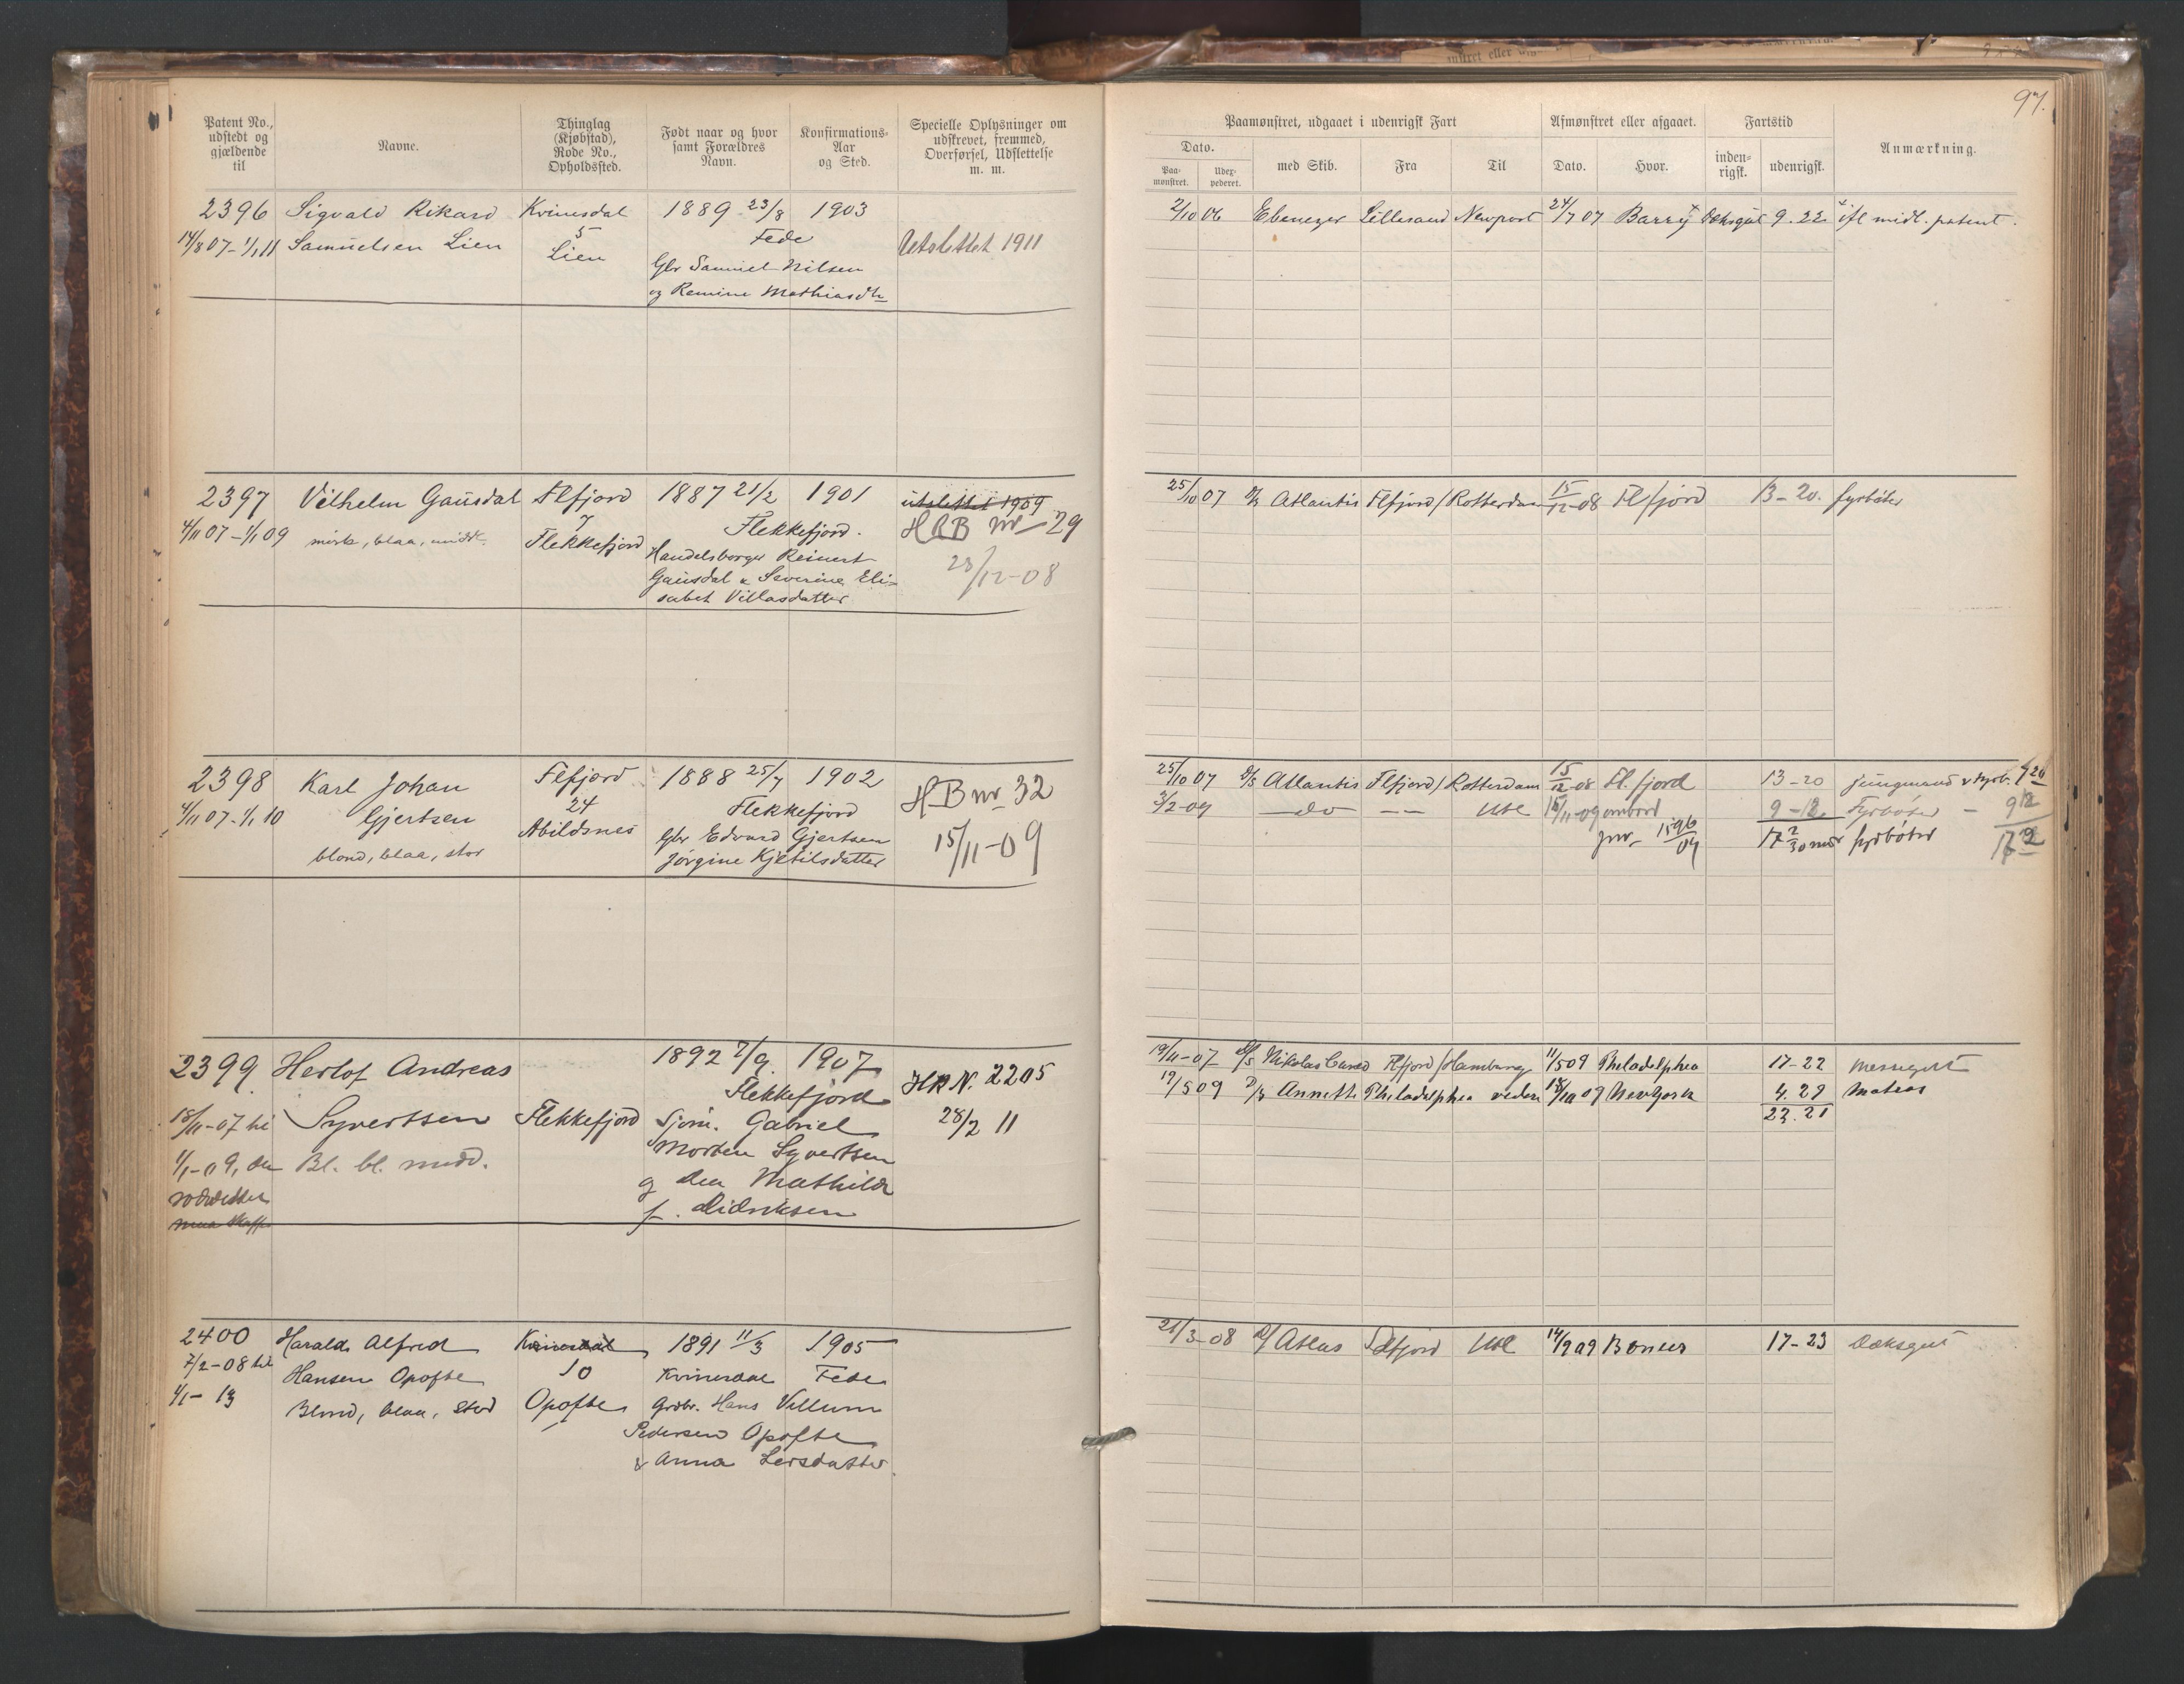 97.
Patent No., udstedt og gjældende til
Navne.
Thinglag (Kjøbstad), Rode No., Opholdssted.
Født naar og hvor samt Forældres Navn.
Konfirmations-Aar og Sted.
Specielle Oplysninger om udskrevet, fremmed, Overførsel, Udslettelse m. m.
Paamønstret, udgaaet i udenrigsk Fart
Afmønstret eller afgaaet.
Fartstid
Anmærkning.
Dato.
Paa-mønstret.
Udex-pederet.
med Skib.
Fra
Til
Dato.
Hvor.
inden-rigsk.
udenrigsk.
2396 Sigvald Rikard Kvinesdal 1889 23/8 1903
14/8 07-1/1 11 Samuelsen Lien 5 Fede Utslettet 1911
Lien Gbr Samuel Nilsen
og Ramine Mathiasdtr
2/10 06 Ebenezer Lillesand Newport 24/7 07 Barry Dæksgut 9.22 ifl midl. patent.
2397 Vilhelm Gausdal Flfjord 1887 21/2 1901 utslettet 1909
4/11 07-1/1 09 mörk, blaa, midd. 7 Flekkefjord. HRB nr 29
Flekkefjord Handelsborger Reinert 28/12-08
Gausdal & Severine Eli-
sabet Villasdatter
25/10 07 D/S Atlantis Flfjord/ Rotterdam 15/12-08 Flfjord 13-20. fyrbøter
2398 Karl Johan Flfjord 1888 25/7 1902 HB nr 32
4/11 07-1/1 10 Gjertsen 24 Flekkefjord
Abildsnes Gbr Edvard Gjertsen 15/11-09
blond, blaa, stor Jørgine Kjetilsdatter
25/10 07 D/S Atlantis Flfjord/ Rotterdam 15/12-08 Fl.fjord 13-20 jungmand & fyrb.
3/2-09 do — Utl 15/11-09 ombord 9-12 Fyrbøter - 9 12
jnr 1596/09 17 2/30 mdr fyrbøter
2399 Herlof Andreas 1892 7/9 1907 HR N. 2205
Flekkefjord
18/11-07 til Syvertsen Flekkefjord Sjöm. Gabriel 28/2 11
1/1-09, den Bl. bl. midd. Morten Syvertsen
og Mathilde
f. Didriksen
19/11-07 D/S Flfjord/Hamburg 11/5 09 Philadelphia 17-22 Messegut
19/5 09 D/S Annetta Philadelphia 18/10 09 NewYork 4.29 Matros
22.21
2400 Harald Alfred Kvinesdal 1891 11/3 1905
7/2-08 til Hansen Opofte 10 Kvinesdal Fede
1/1-13 Blond, blaa, stor Opofte Grdbr. Hans Villum
Pedersen Opofte
& Anna Larsdatter
21/3-08 D/ Atlas Utl 14/9 09 17-23 Dæksgut